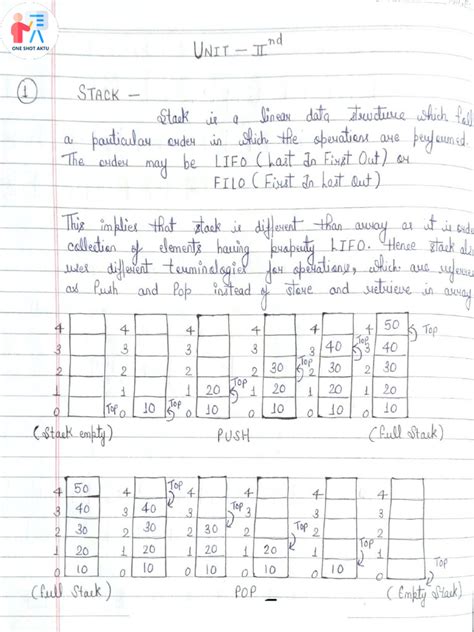 ONE SHOT AKTU
UNIT - II nd
1 STACK -
Stack is a linear data structure which foll
a particular order in which the operations are performed.
The order may be LIFO (Last In First Out) or
FILO (First In Last Out)
This implies that stack is different than array as it is orde
collection of elements having property LIFO. Hence stack also
uses different terminologies for operations, which are referee
as Push and Pop instead of store and retrieve in array
4 4 4 4 4 4 50 Top
3 3 3 3 3 40 Top 3 40
2 2 2 2 30 Top 2 30 2 30
1 1 1 20 Top 1 20 1 20 1 20
0 Top 0 10 Top 0 10 0 10 0 10 0 10
(Stack empty) PUSH (Full Stack)
4 50 4 Top 4 4 4 4
3 40 3 40 3 Top 3 3 3
2 30 2 30 2 30 2 Top 2 2
1 20 1 20 1 20 1 20 1 Top 1
0 10 0 10 0 10 0 10 0 10 0 Top
(Full Stack) POP (Empty Stack)